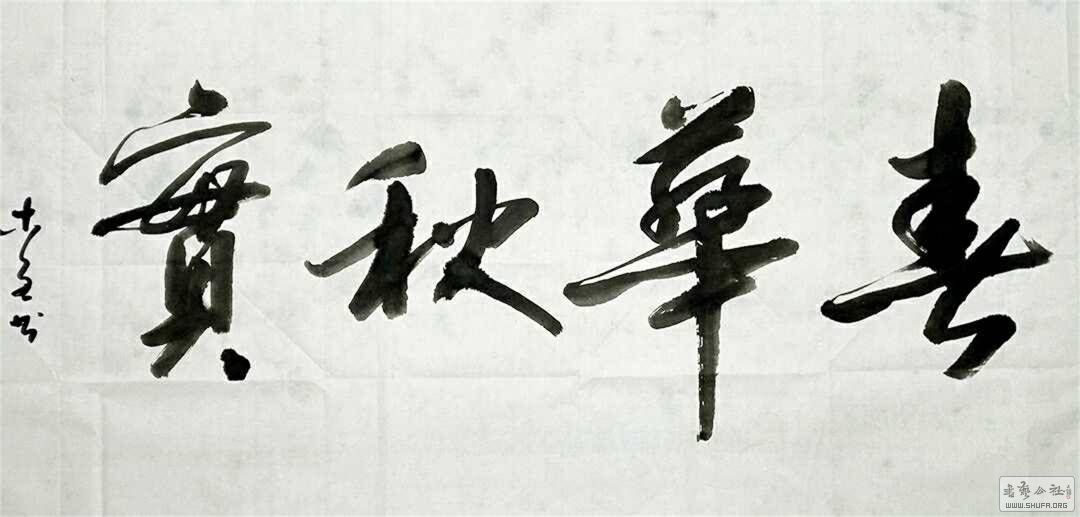 春華秋實
书艺公社
WWW.SHUFA.ORG